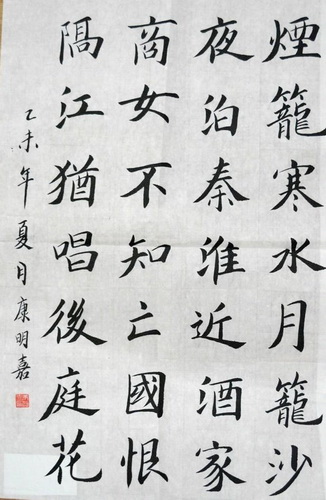 煙籠寒水月籠沙
夜泊秦淮近酒家
商女不知亡國恨
隔江猶唱後庭花
乙未年夏月康明嘉